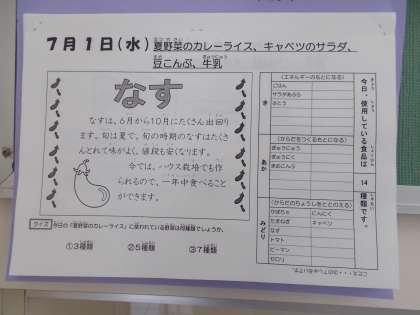 7月1日(水) 夏野菜のカレーライス、キャベツのサラダ、
豆こんぶ、牛乳
なす
なすは、6月から10月にたくさん出回り
ます。旬は夏で、旬の時期のなすはたくさ
んとれて味がよく、値段も安くなります。
今では、ハウス栽培でも作
られるので、一年中食べること
ができます。
クイズ 今日の「夏野菜のカレーライス」に使われている野菜は何種類でしょうか。
①3種類 ②5種類 ③7種類
今日、使用している食品は 14 種類です。
き
(エネルギーのもとになる)
ごはん
サラダあぶら
さとう
あか
(からだをつくるもとになる)
ぎゅうにゅう
ぎゅうにく
まめこんぶ
みどり
(からだのちょうしをととのえる)
かぼちゃ にんにく
たまねぎ キャベツ
なす
トマト
ピーマン
セロリ